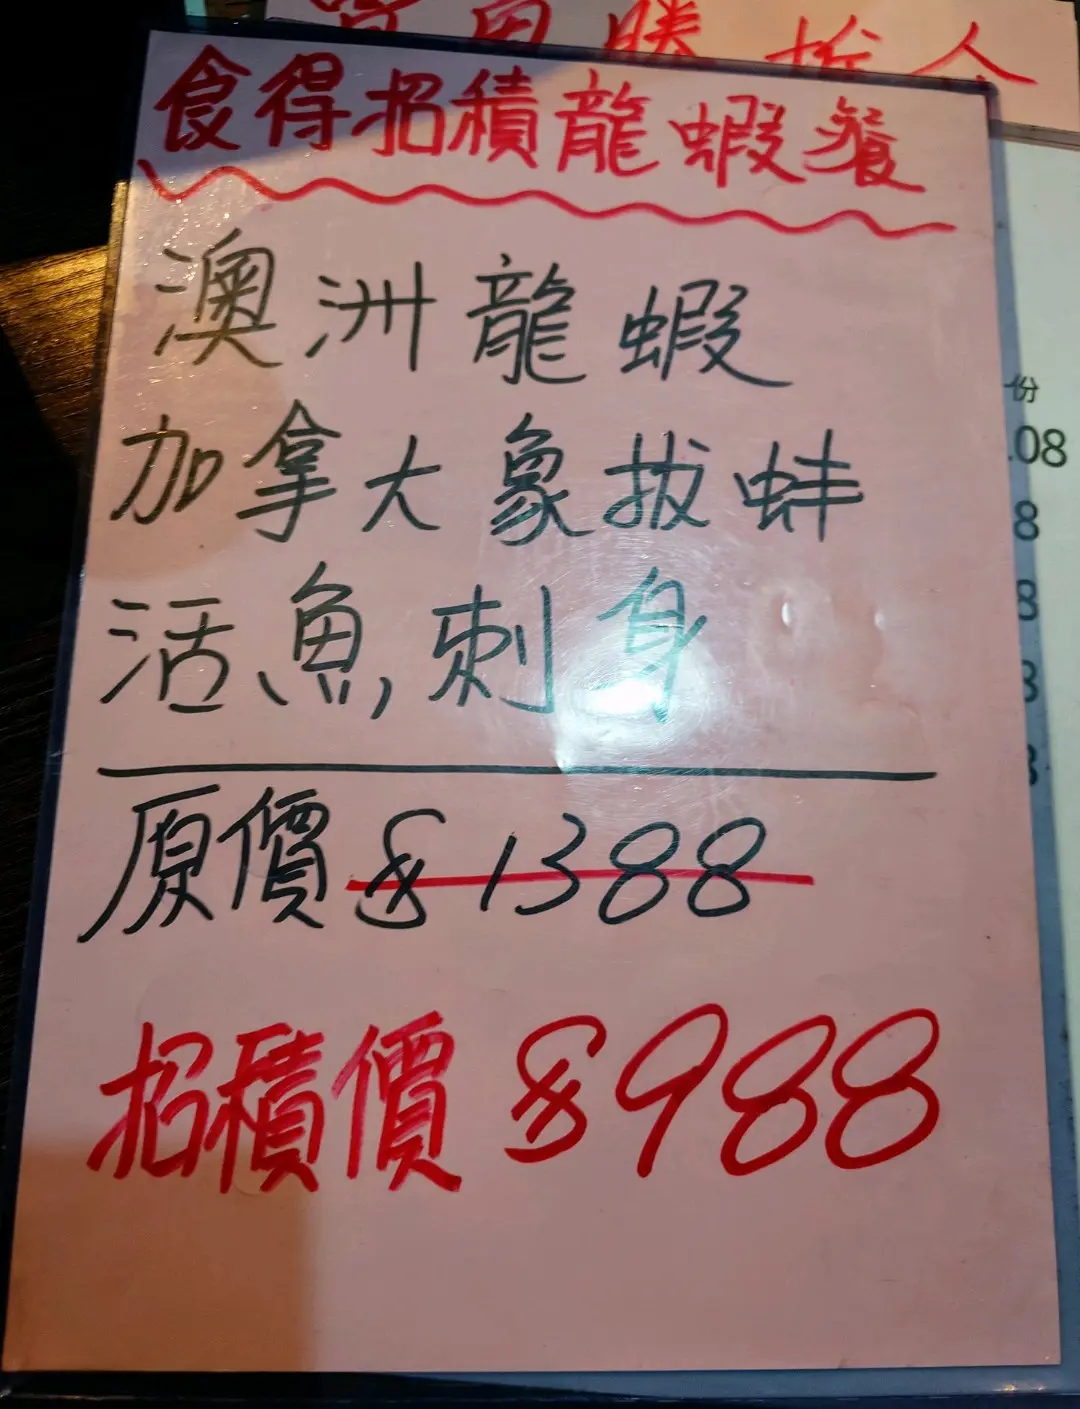 勝
食得招積龍蝦餐
澳洲龍蝦
加拿大象拔蚌
活魚刺身
原價$1388
招積價$988
份
.08
8
8
8